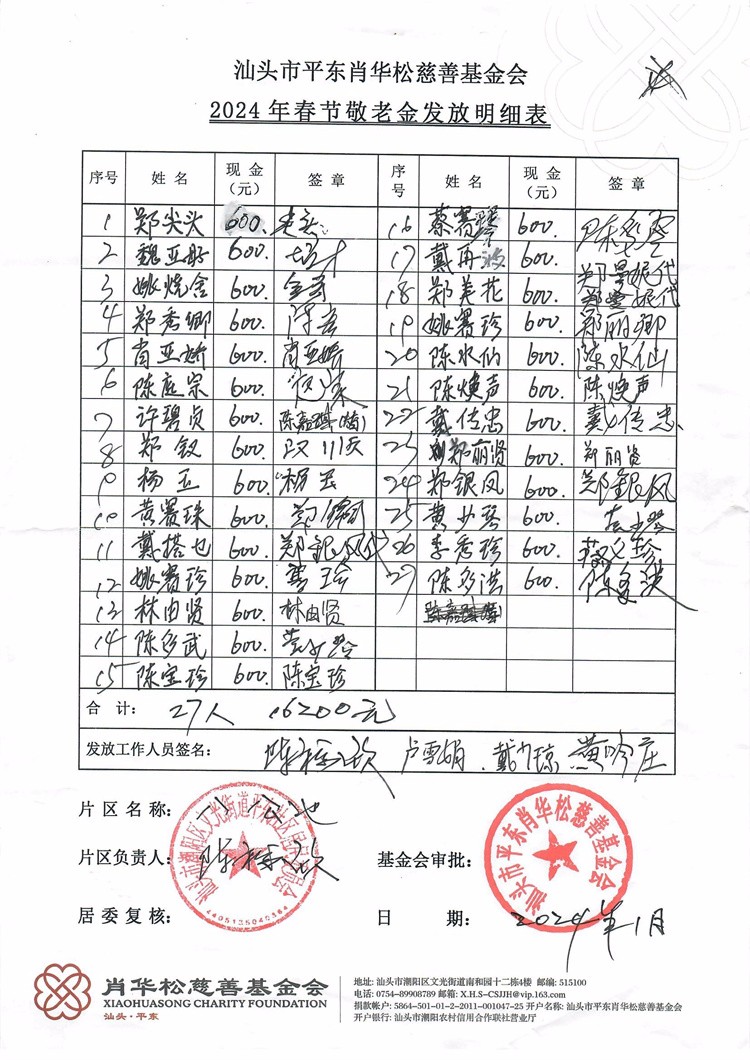 汕头市平东肖华松慈善基金会
2024 年春节敬老金发放明细表
序号 姓名 现金（元） 签章 序号 姓名 现金（元） 签章
1 郑尖头 600. 16 蔡赛 600.
2 魏亚 600. 17 戴再 600. 郑曼银代
3 姚烧金 600. 18 郑美花 600. 郑曼银代
4 郑秀卿 600. 19 姚赛珍 600. 郑丽卿
5 肖亚娇 600. 肖亚娇 20 陈水仙 600. 陈水仙
6 陈庭宗 600. 21 陈焕声 600. 陈焕声
7 许碧贞 600. 22 戴传忠 600. 戴传忠
8 郑钗 600. 23 郑丽贤 600. 郑丽贤
9 杨玉 600. 杨玉 24 郑银凤 600. 郑银凤
10 黄赛珠 600. 25 黄少琴 600.
11 戴搭也 600. 郑银凤代 26 李秀珍 600.
12 姚赛珍 600. 27 陈多洪 600.
13 林由贤 600. 林由贤
14 陈多武 600.
15 陈宝珍 600. 陈宝珍
合 计： 27人 16200元
发放工作人员签名： 卢雪娟 . 黄吟庄
片区名称：
片区负责人： 基金会审批：
居委复核： 日 期： 2024年1月
汕头市平东肖华松慈善基金会
肖华松慈善基金会
XIAOHUASONG CHARITY FOUNDATION
汕头·平东
地址: 汕头市潮阳区文光街道南和园十二栋4楼 邮编: 515100
电话: 0754-89908789 邮箱: X.H.S-CSJJH@vip.163.com
捐款帐户: 5864-501-01-2-2011-001047-25 开户名称: 汕头市平东肖华松慈善基金会
开户银行: 汕头市潮阳农村信用合作联社营业厅